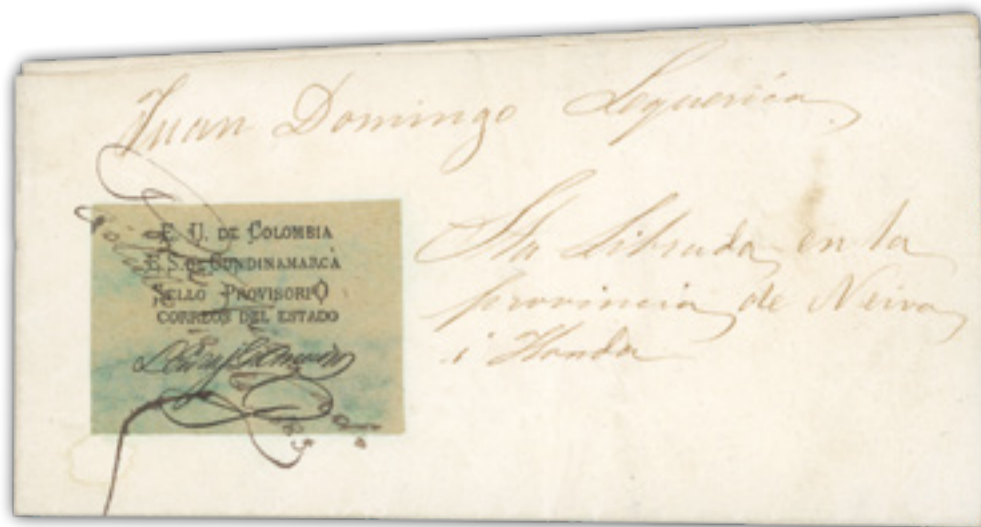 Juan Domingo
E. U. DE COLOMBIA
E. S. DE CUNDINAMARCA
SELLO PROVISORIO
CORREOS DEL ESTADO
Sta Librada en la
provincia de Neiva
i Honda